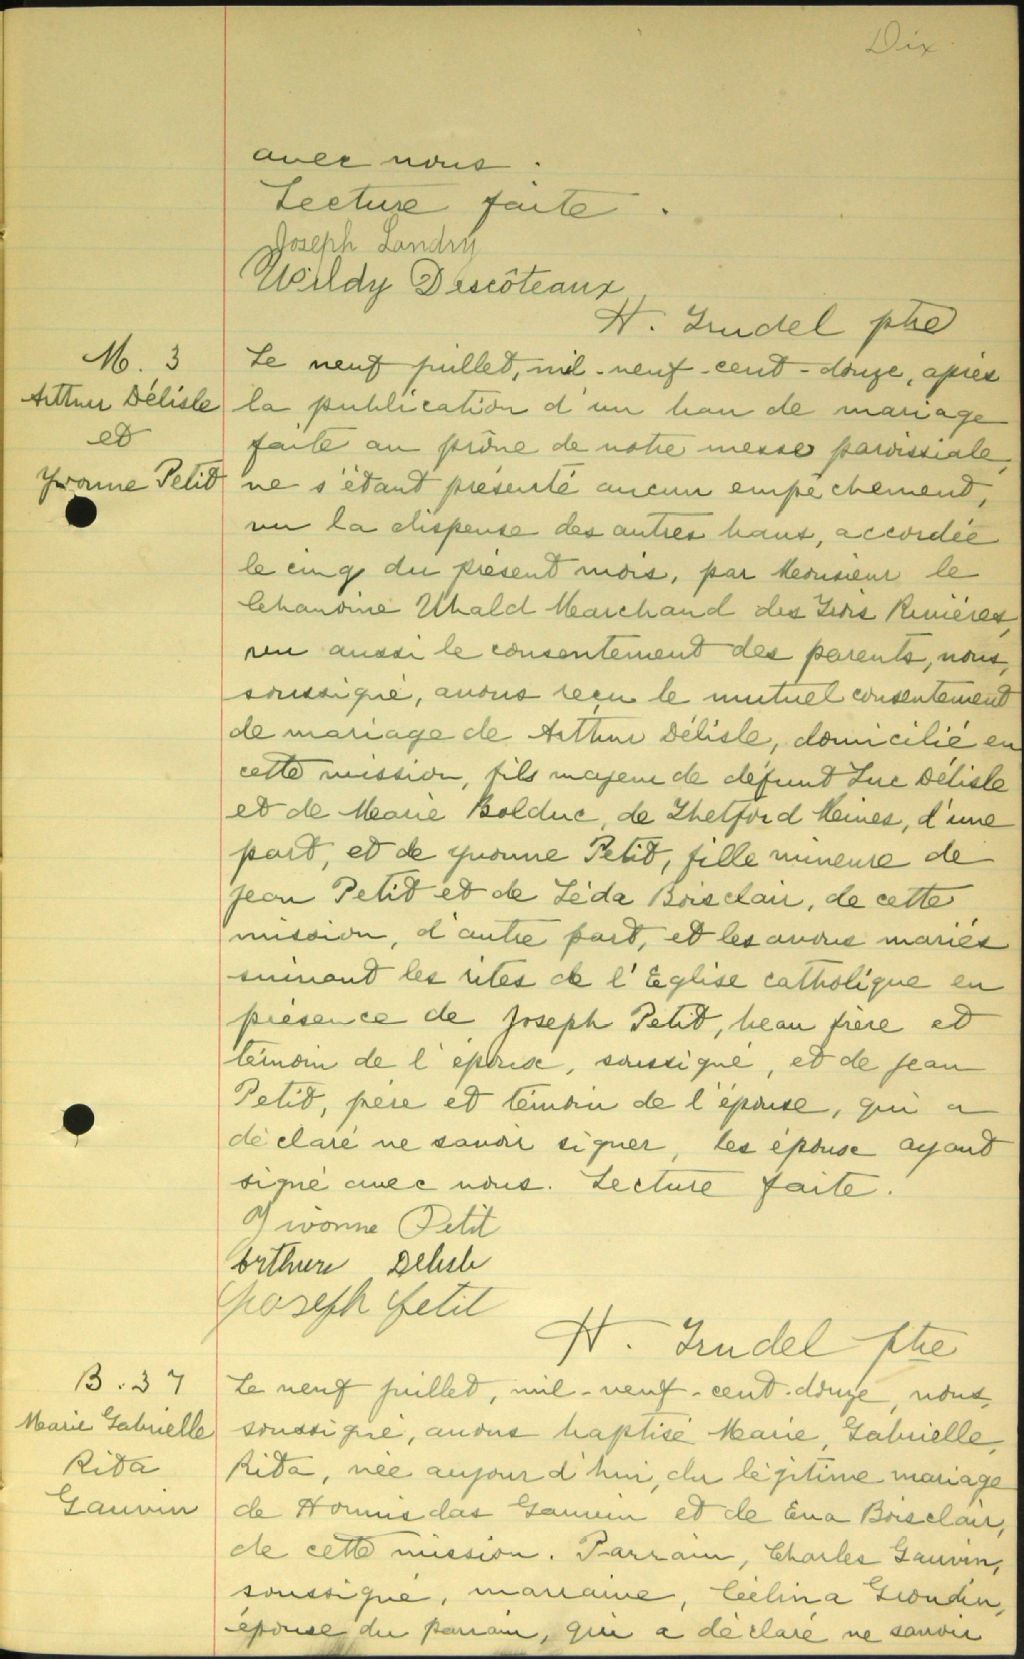 Dix
avec nous.
Lecture faite.
Joseph Landry
Wildy Descôteaux
H. Trudel ptre
M. 3
Arthur Délisle
et
Yvonne Petit
Le neuf juillet, mil-neuf-cent-douze, après
la publication d'un ban de mariage
faite au prône de notre messe paroissiale,
ne s'étant présenté aucun empêchement,
vu la dispense des autres bans, accordée
le cinq du présent mois, par Monsieur le
Chanoine Ubald Marchand des Trois Rivières,
vu aussi le consentement des parents, nous,
soussigné, avons reçu le mutuel consentement
de mariage de Arthur Délisle, domicilié en
cette mission, fils majeur de défunt Luc Délisle
et de Marie Bolduc, de Thetford Mines, d'une
part, et de Yvonne Petit, fille mineure de
Jean Petit et de Léda Boisclair, de cette
mission, d'autre part, et les avons mariés
suivant les rites de l'Eglise catholique en
présence de Joseph Petit, beau frère et
témoin de l'époux, soussigné, et de Jean
Petit, père et témoin de l'épouse, qui a
déclaré ne savoir signer, les époux ayant
signé avec nous. Lecture faite.
Yvonne Petit
Arthur Delisle
Joseph Petit
H. Trudel ptre
B. 37
Marie Gabrielle
Rita
Gauvin
Le neuf juillet, mil-neuf-cent-douze, nous,
soussigné, avons baptisé Marie, Gabrielle,
Rita, née aujourd'hui, du légitime mariage
de Hormisdas Gauvin et de Eva Boisclair,
de cette mission. Parrain, Charles Gauvin,
soussigné, marraine, Célina Grondin,
épouse du parrain, qui a déclaré ne savoir